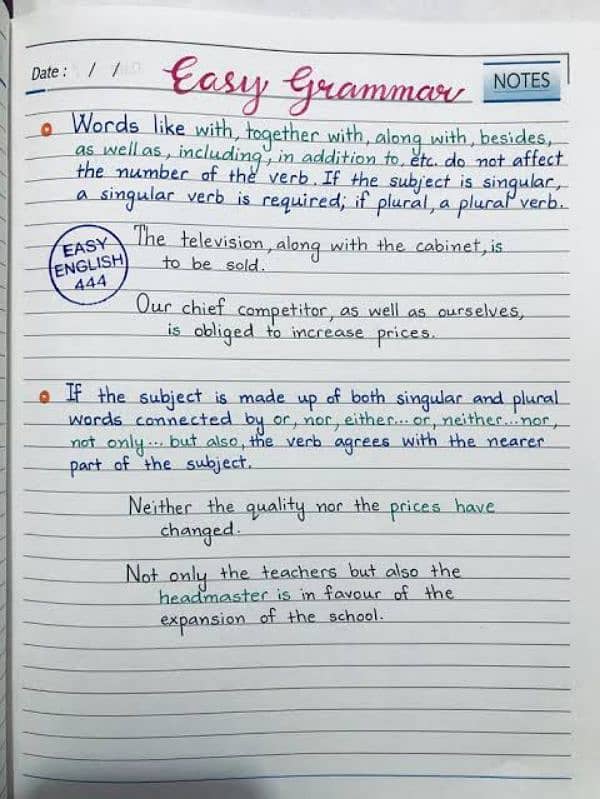 Date : / /
Easy Grammar
NOTES
Words like with, together with, along with, besides,
as well as, including, in addition to, etc. do not affect
the number of the verb. If the subject is singular,
a singular verb is required; if plural, a plural verb.
EASY
ENGLISH
444
The television, along with the cabinet, is
to be sold.
Our chief competitor, as well as ourselves,
is obliged to increase prices.
If the subject is made up of both singular and plural
words connected by or, nor, either... or, neither...nor,
not only... but also, the verb agrees with the nearer
part of the subject.
Neither the quality nor the prices have
changed.
Not only the teachers but also the
headmaster is in favour of the
expansion of the school.